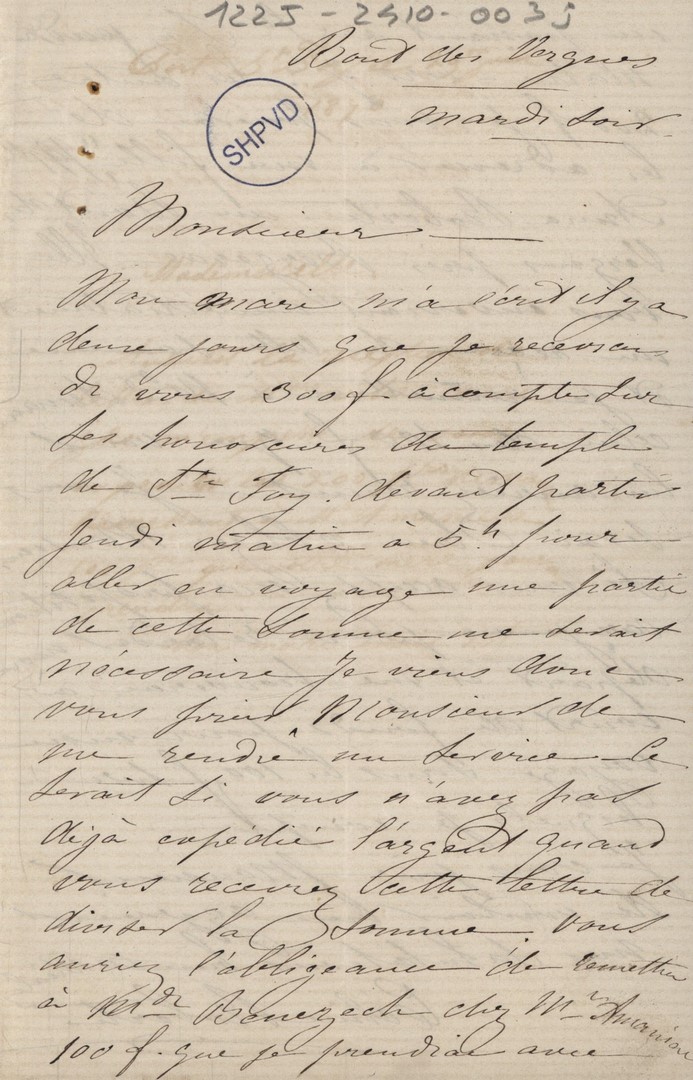 1225-2410-0035
Bout des Vergnes
mardi soir
SHPVD
Monsieur
Mon mari m'a écrit il y a
deux jours que je recevrai
de vous 300f. à compte sur
ses honoraires du temple
de Ste Foy. devant partir
jeudi matin à 5h pour
aller en voyage une partie
de cette somme me serait
nécessaire je viens donc
vous prier Monsieur de
me rendre un service ce
serait si vous n'avez pas
déjà expédié l'argent quand
vous recevrez cette lettre de
diviser la somme. vous
auriez l'obligeance de remettre
à Benezech chez Mr Amanieu
100 f. que je prendrai avec